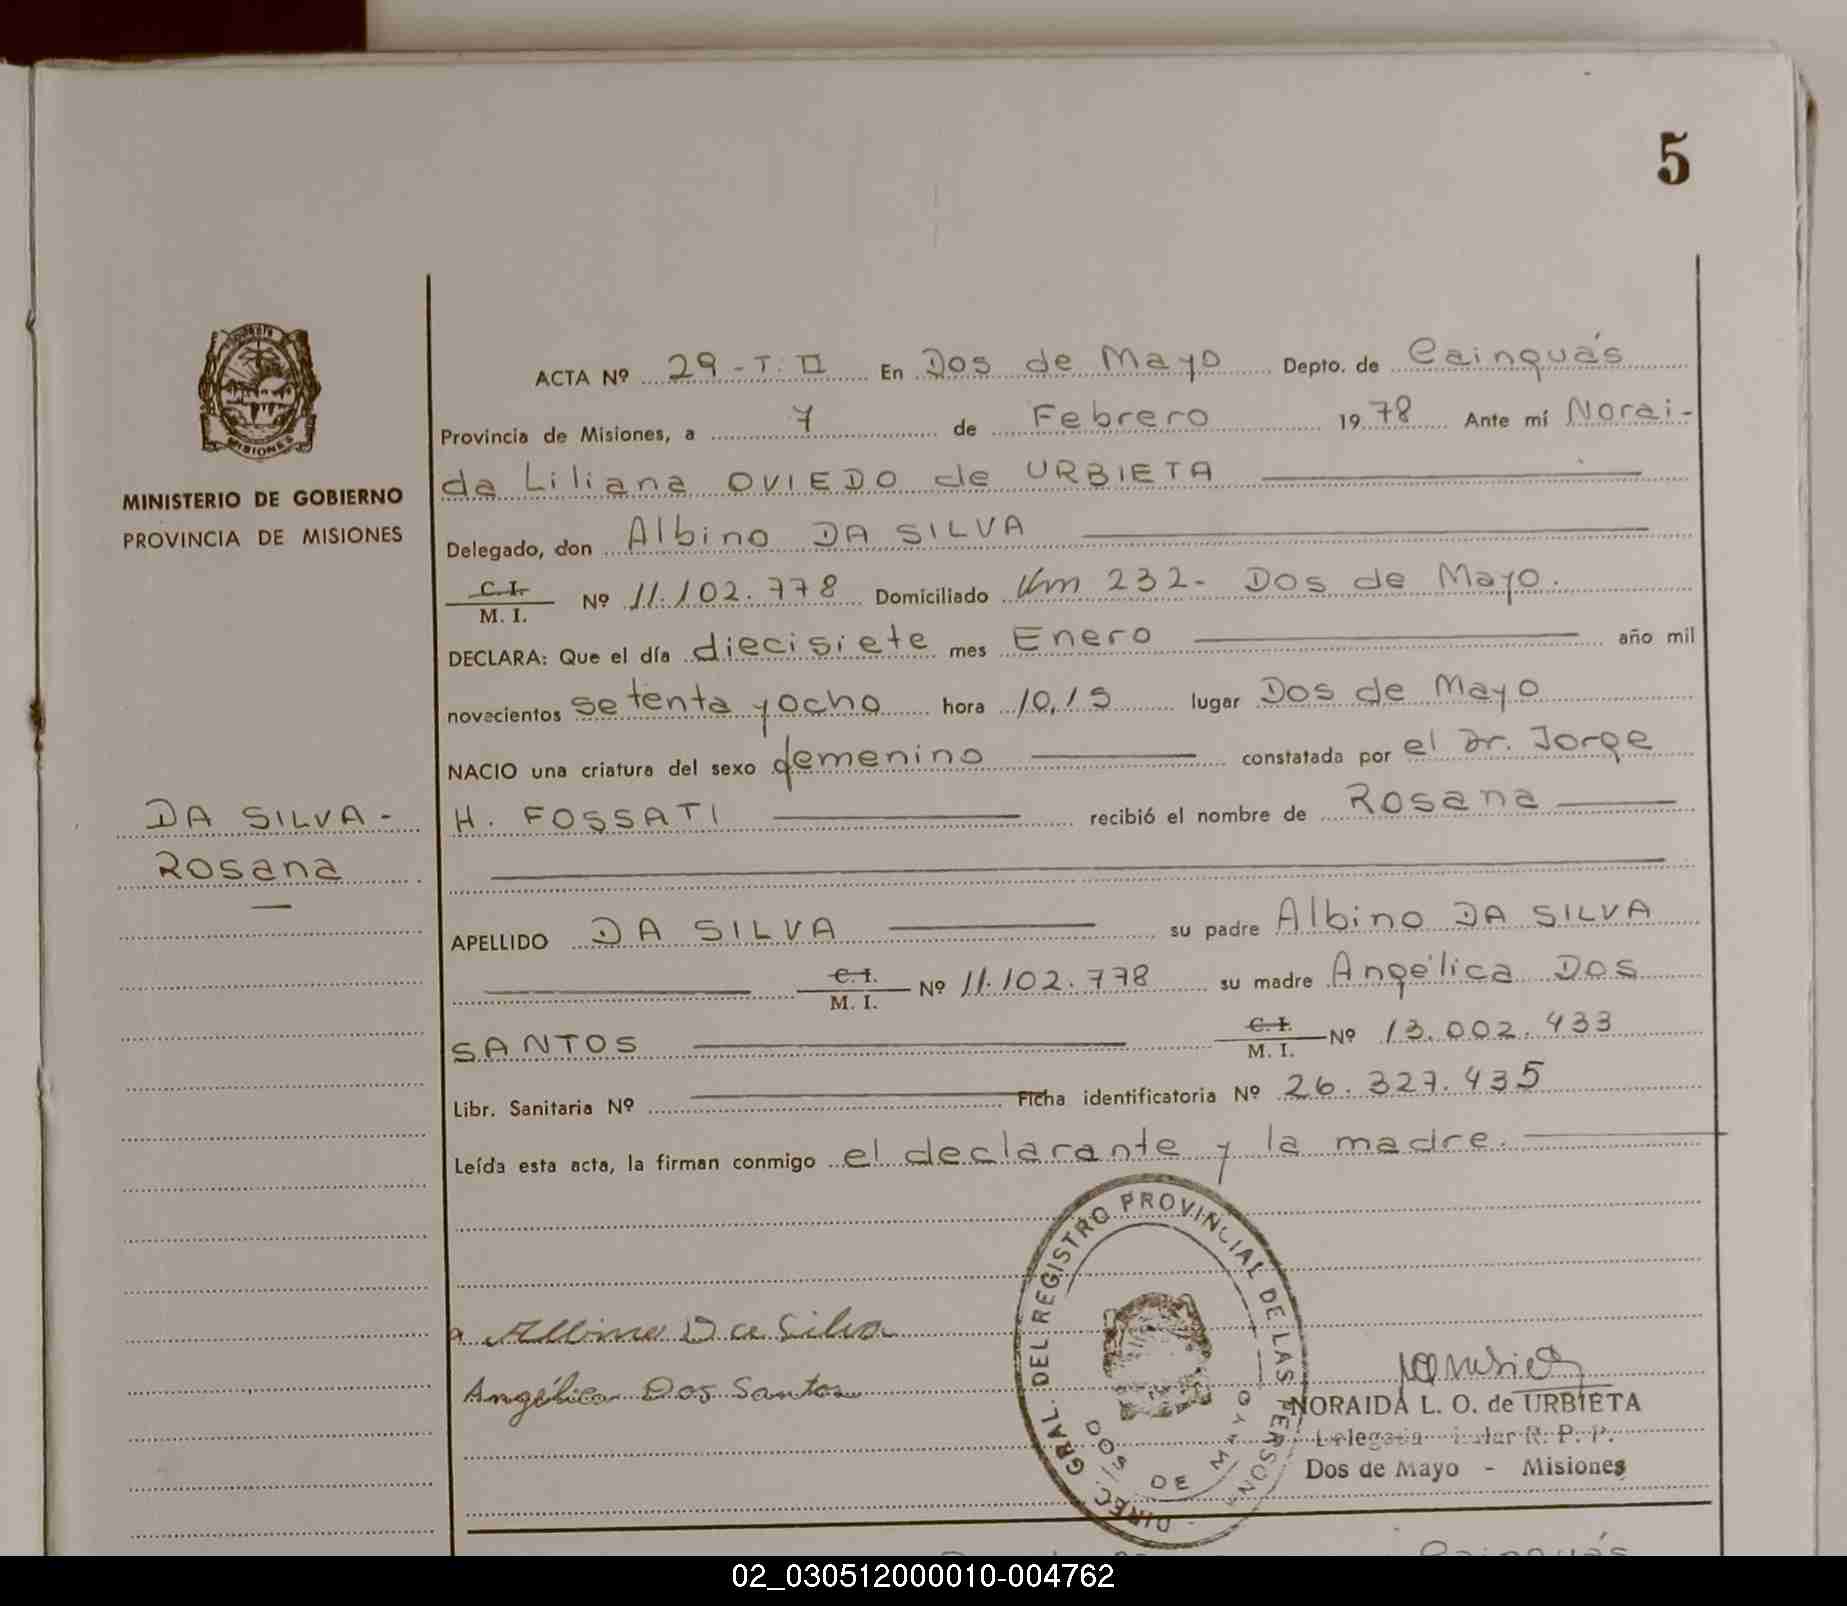 5
MISIONES
MINISTERIO DE GOBIERNO
PROVINCIA DE MISIONES
DA SILVA -
Rosana
ACTA Nº 29 - T. II En Dos de Mayo Depto. de Cainguás
Provincia de Misiones, a 7 de Febrero 1978 Ante mí Norai-
da Liliana OVIEDO de URBIETA
Delegado, don Albino DA SILVA
C. I.
M. I. Nº 11.102.778 Domiciliado Km 232 - Dos de Mayo.
DECLARA: Que el día diecisiete mes Enero año mil
novecientos setenta y ocho hora 10,15 lugar Dos de Mayo
NACIO una criatura del sexo femenino constatada por el Dr. Jorge
H. FOSSATI recibió el nombre de Rosana
APELLIDO DA SILVA su padre Albino DA SILVA
C. I.
M. I. Nº 11.102.778 su madre Angélica DOS
SANTOS C. I.
M. I. Nº 13.002.433
Libr. Sanitaria Nº Ficha identificatoria Nº 26.327.435
Leída esta acta, la firman conmigo el declarante y la madre.
DIREC. GRAL. DEL REGISTRO PROVINCIAL DE LAS PERSONAS
DOS DE MAYO
Albino Da Silva
Angélica Dos Santos
NORAIDA L. O. de URBIETA
R. P. P.
Dos de Mayo - Misiones
Cainguás
02_030512000010-004762